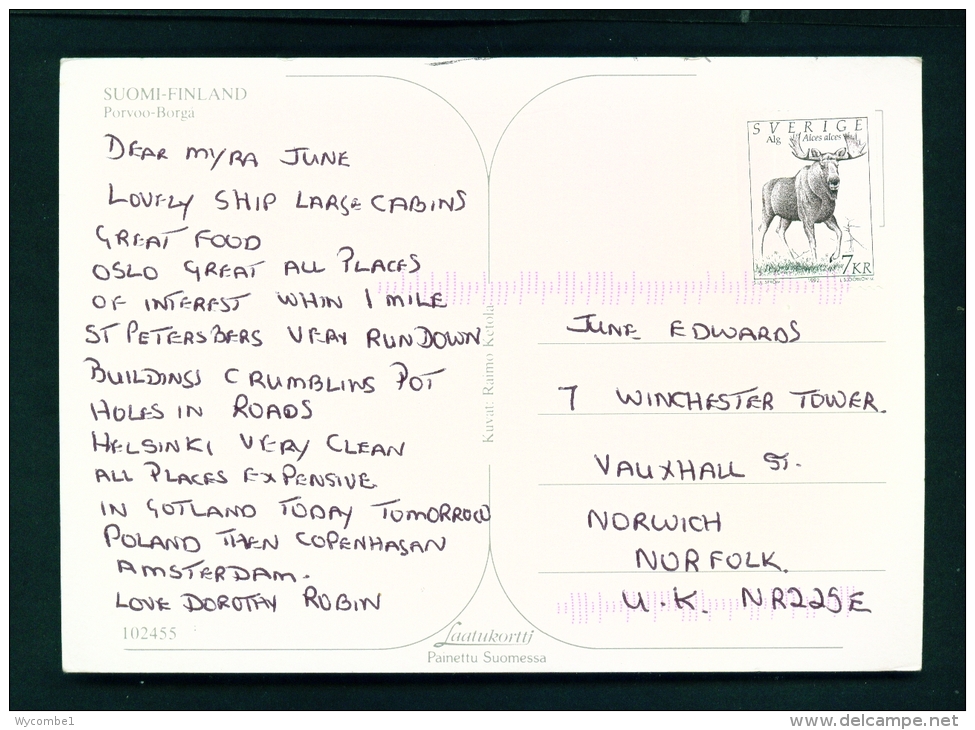 SUOMI-FINLAND
Porvoo-Borgå
DEAR MYRA JUNE
LOVELY SHIP LARGE CABINS
GREAT FOOD
OSLO GREAT ALL PLACES
OF INTEREST WHIN 1 MILE
ST PETERSBERG VERY RUN DOWN
BUILDINGS CRUMBLING POT
HOLES IN ROADS
HELSINKI VERY CLEAN
ALL PLACES EXPENSIVE
IN GOTLAND TODAY TOMORROW
POLAND THEN COPENHAGAN
AMSTERDAM.
LOVE DOROTHY ROBIN
102455
Kuvat: Raimo Ketola
Laatukortti
Painettu Suomessa
SVERIGE
Älg Alces alces
7KR
JUNE EDWARDS
7 WINCHESTER TOWER.
VAUXHALL ST.
NORWICH
NORFOLK.
U.K. NR22SE
Wycombe1
www.delcampe.net